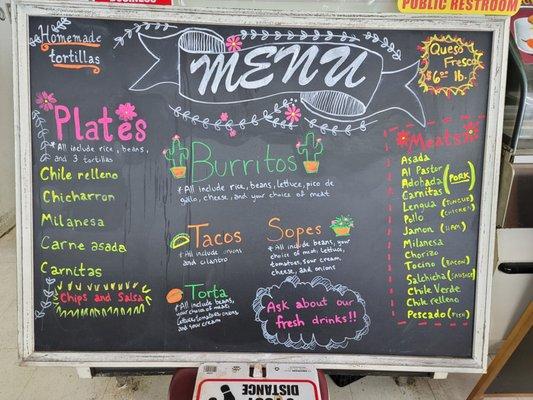 BUSINESS
PUBLIC RESTROOM
Homemade
tortillas
MENU
Queso
Fresco
$6.00 lb.
Plates
* All include rice, beans,
and 3 tortillas
Chile relleno
Chicharron
Milanesa
Carne asada
Carnitas
Chips and Salsa
Burritos
* All include rice, beans, lettuce, pico de
gallo, cheese, and your choice of meat
Tacos
* All include onions
and cilantro
Torta
* All include beans,
your choice of meat,
lettuce, tomatoes, onions
and sour cream
Sopes
* All include beans,
your choice of meat, lettuce,
tomatoes, sour cream,
cheese, and onions
Ask about our
fresh drinks!!
Meats
Asada
Al Pastor
Adobada (PORK)
Carnitas
Lengua (TONGUE)
Pollo (CHICKEN)
Jamon (HAM)
Milanesa
Chorizo
Tocino (BACON)
Salchicha (SAUSAGE)
Chile Verde
Chile relleno
Pescado (FISH)
DISTANCE